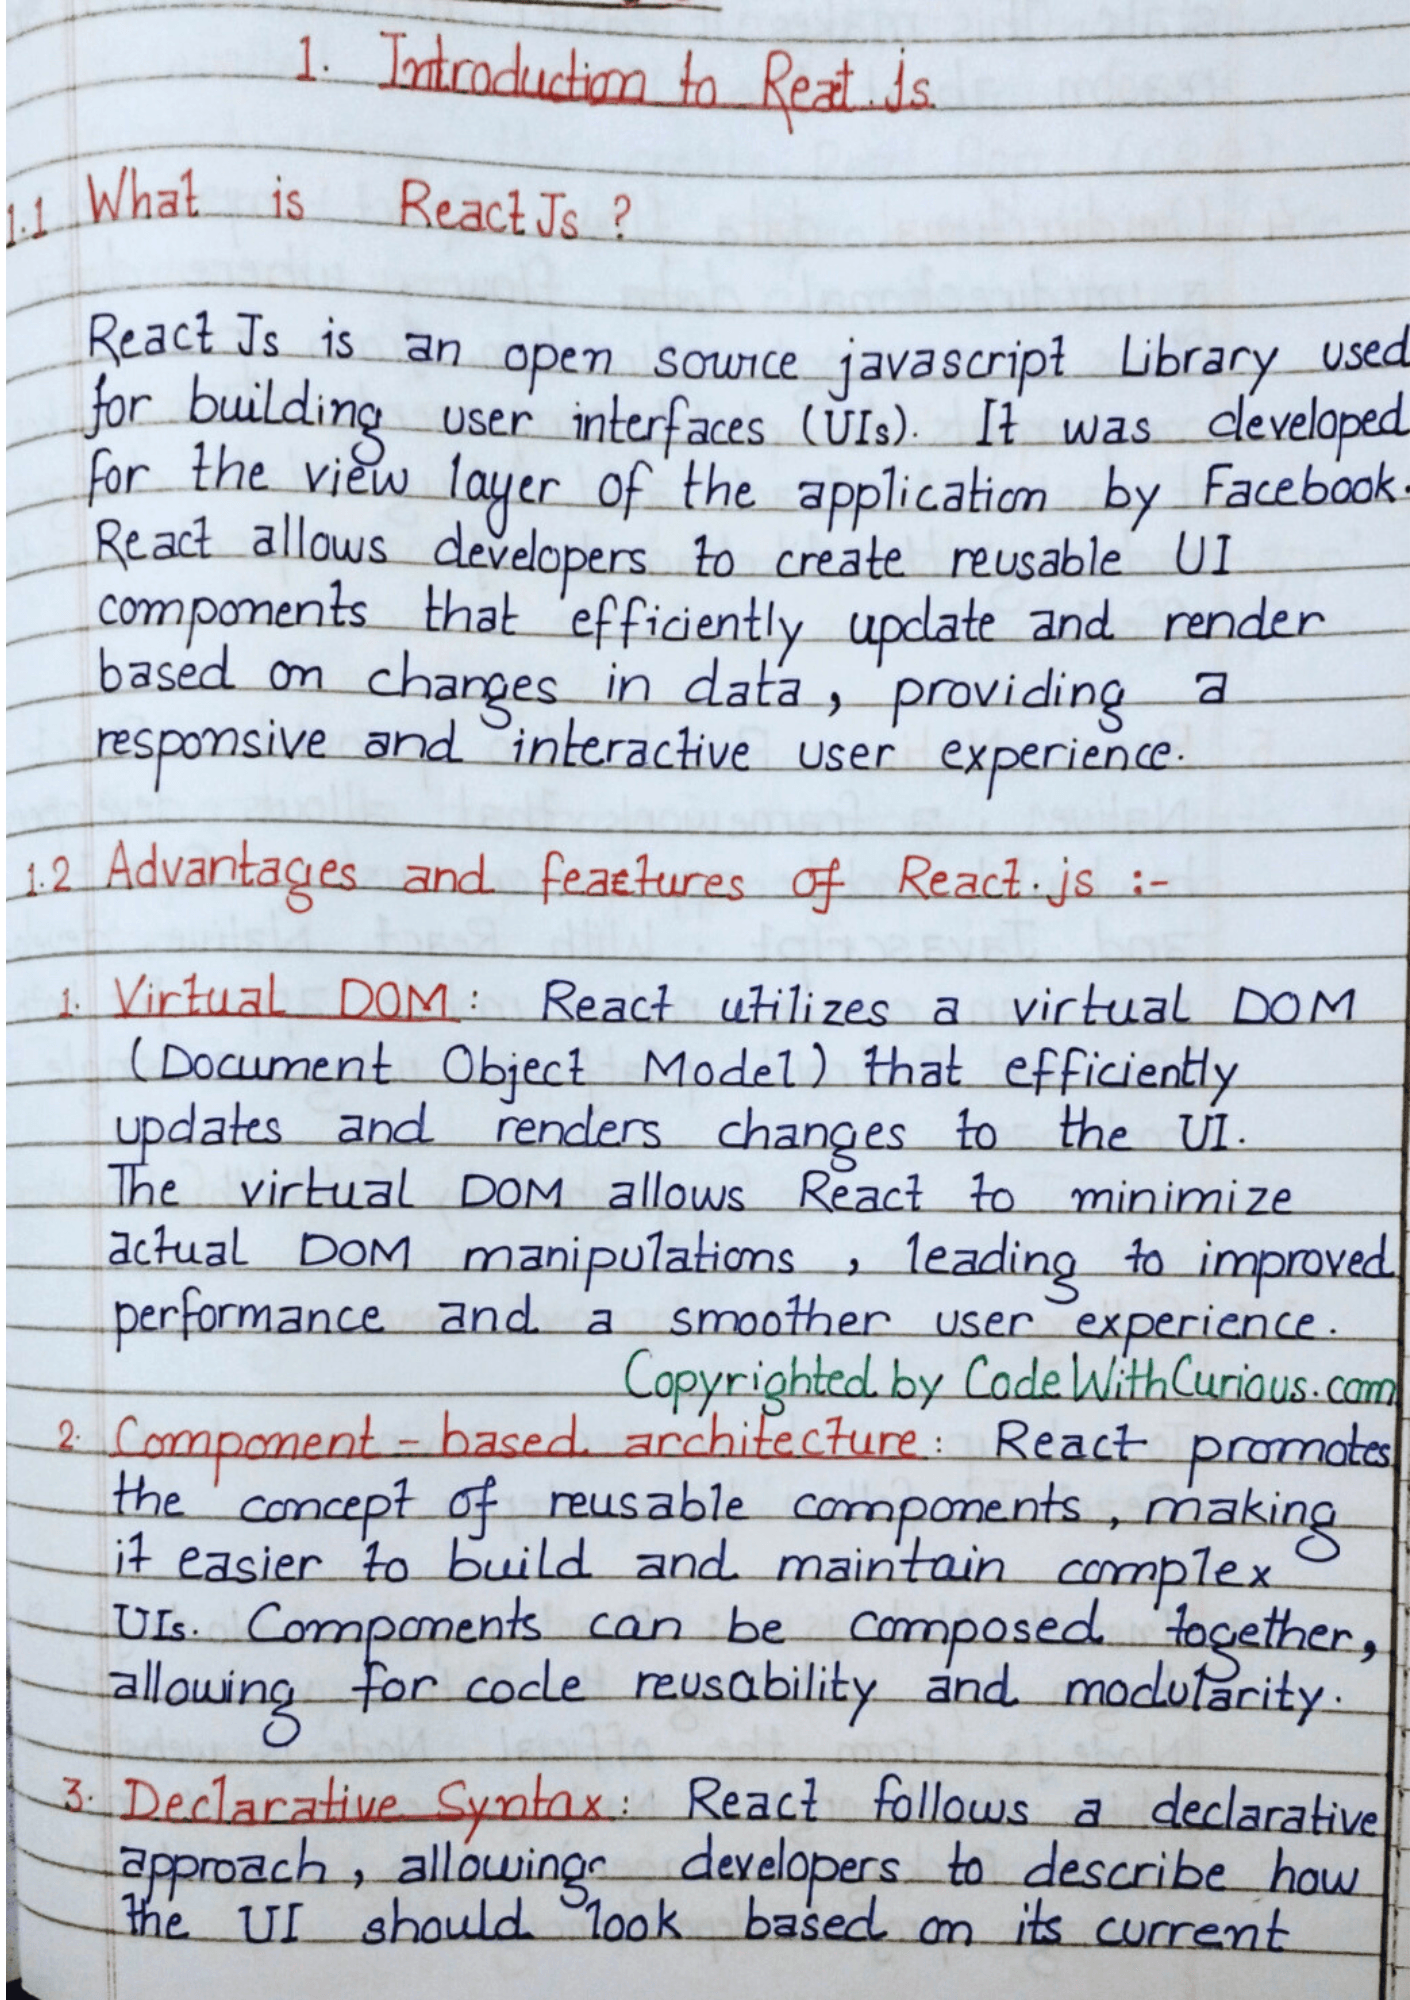 1. Introduction to React.js
1.1 What is ReactJs ?
React Js is an open source javascript Library used
for building user interfaces (UIs). It was developed
for the view layer of the application by Facebook.
React allows developers to create reusable UI
components that efficiently update and render
based on changes in data, providing a
responsive and interactive user experience.
1.2 Advantages and features of React.js :-
1. Virtual DOM: React utilizes a virtual DOM
(Document Object Model) that efficiently
updates and renders changes to the UI.
The virtual DOM allows React to minimize
actual DOM manipulations, leading to improved
performance and a smoother user experience.
Copyrighted by CodeWithCurious.com
2. Component-based architecture: React promotes
the concept of reusable components, making
it easier to build and maintain complex
UIs. Components can be composed together,
allowing for code reusability and modularity.
3. Declarative Syntax: React follows a declarative
approach, allowing developers to describe how
the UI should look based on its current